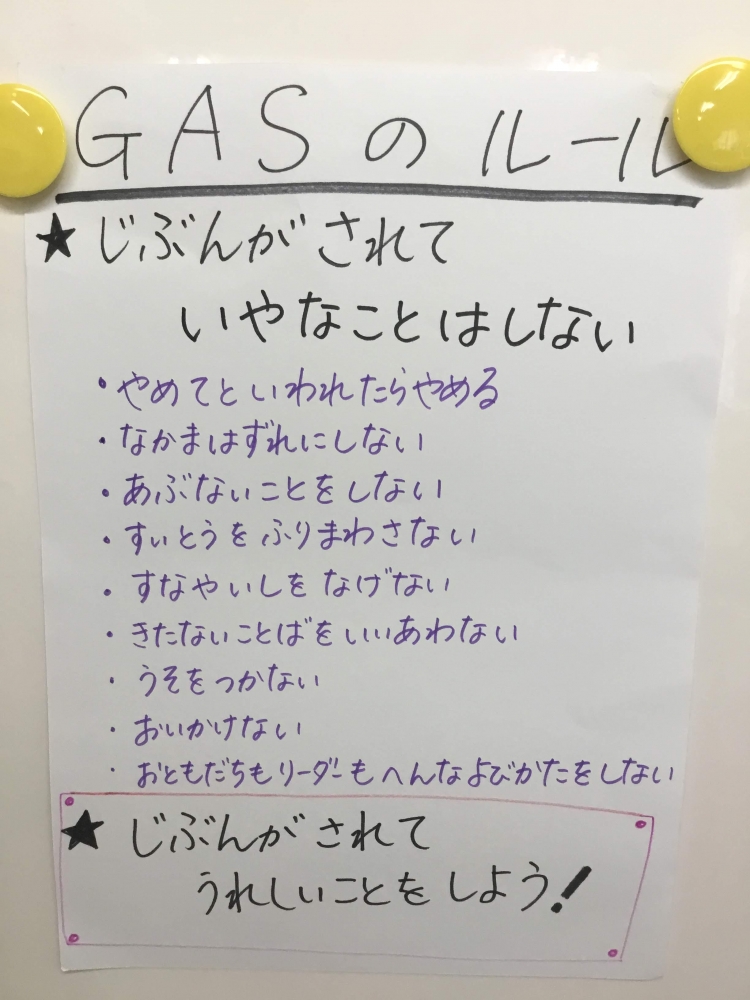 GASのルール
★じぶんがされて
いやなことはしない
・やめてといわれたらやめる
・なかまはずれにしない
・あぶないことをしない
・すいとうをふりまわさない
・すなやいしをなげない
・きたないことばをいいあわない
・うそをつかない
・おいかけない
・おともだちもリーダーもへんなよびかたをしない
★じぶんがされて
うれしいことをしよう!